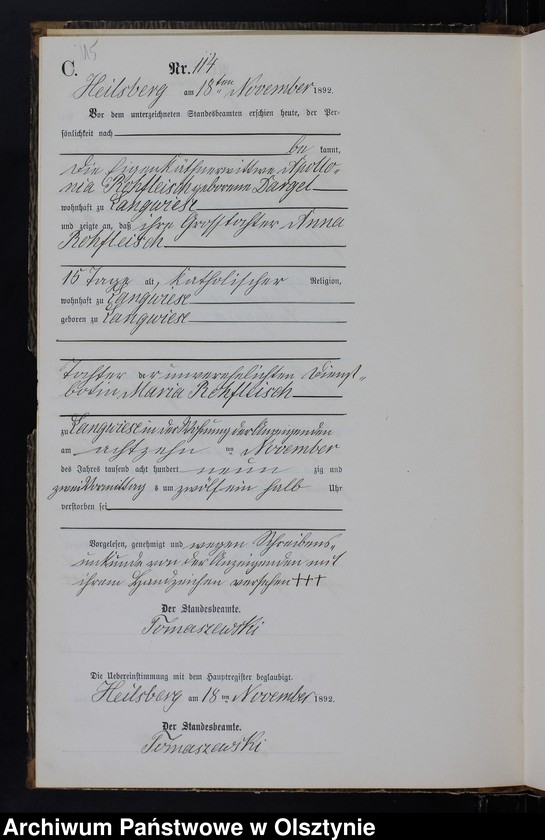 115
C. Nr. 114
Heilsberg am 18ten November 1892.
Vor dem unterzeichneten Standesbeamten erschien heute, der Per-
sönlichkeit nach
be kannt,
die Eigenkäthnerwittwe Apollo-
nia Rohfleisch geborene Dargel
wohnhaft zu Langwiese
und zeigte an, daß ihre Grosstochter Anna
Rohfleisch
15 Tage alt, katholischer Religion,
wohnhaft zu Langwiese
geboren zu Langwiese
Tochter der unverehelichten Dienst-
botin Maria Rohfleisch
zu Langwiese in der Wohnung der Anzeigenden
am achtzehn ten November
des Jahres tausend acht hundert neun zig und
zwei Vormittag s um zwölf ein halb Uhr
verstorben sei
Vorgelesen, genehmigt und wegen Schreibens-
unkunde von der Anzeigenden mit
ihrem Handzeichen versehen +++
Der Standesbeamte.
Tomaszewski
Die Uebereinstimmung mit dem Hauptregister beglaubigt.
Heilsberg am 18 ten November 1892.
Der Standesbeamte.
Tomaszewski
Archiwum Państwowe w Olsztynie